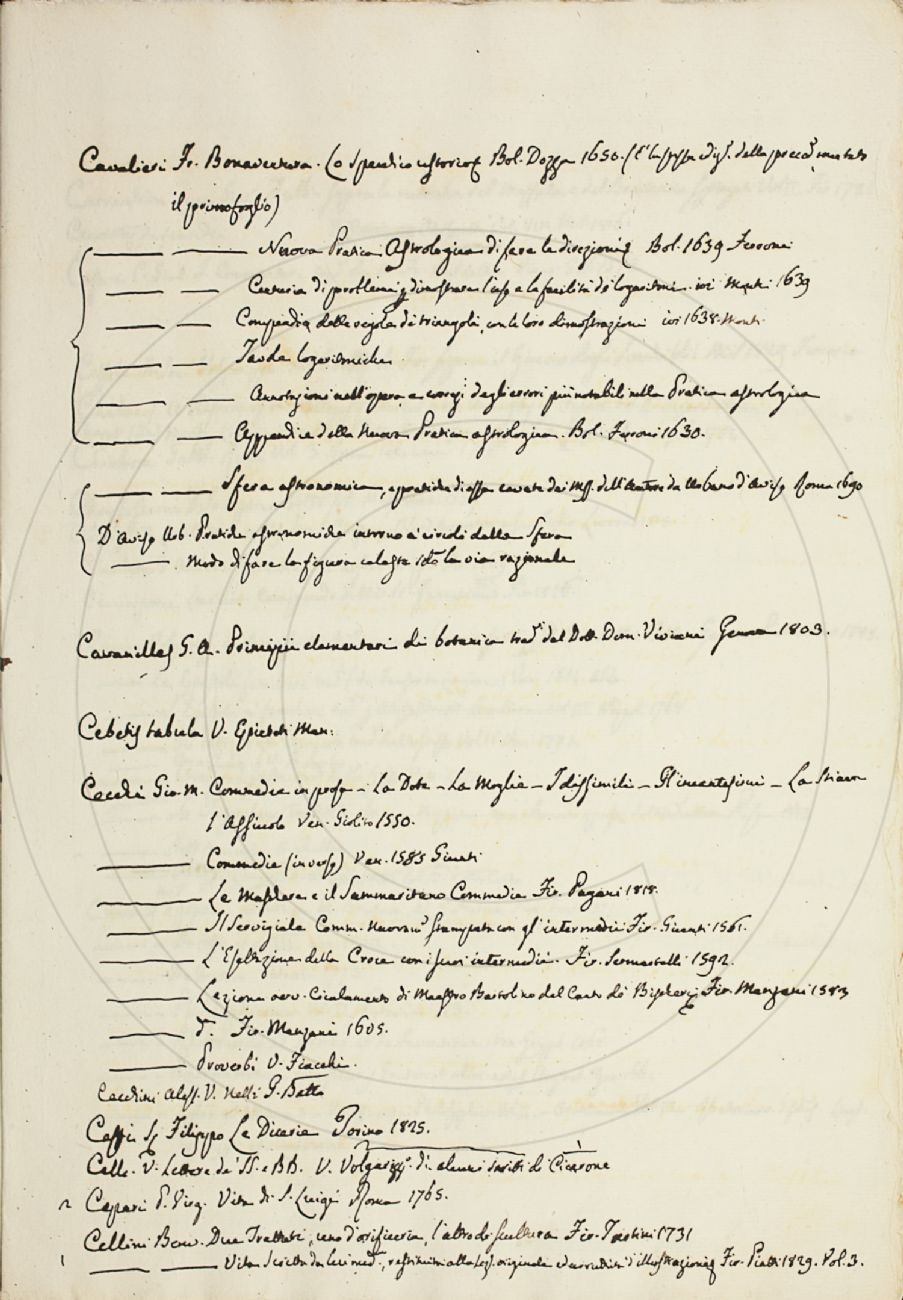 Cavalieri Fr. Bonaventura. Lo Specchio ustorio Bol. Dozza 1650. (È la stessa ediz. della preced. mutato
il primo foglio)
—— —— Nuova Pratica Astrologica di fare le direzioni Bol. 1639 Ferroni
—— —— Centuria di problemi p dimostrare l'uso e la facilità de' logaritmi. ivi Monti 1639
—— —— Compendio delle regole de' triangoli, con le loro dimostrazioni ivi 1638. Monti.
—— —— Tavole logaritmiche
—— —— Annotazioni nell'opera e correz. degli errori più notabili nella Pratica astrologica
—— —— Appendice della Nuova Pratica astrologica. Bol. Ferroni 1630.
—— —— Sfera astronomica, e pratiche di essa cavate dai Mss. dell'Autore da Urbano d'Aviso Roma 1690
D'Aviso Urb. Pratiche astronomiche intorno a' circoli della Sfera
—— Modo di fare la figura celeste la via razionale
Cavanilles G. A. Principii elementari di botanica trad. dal Dott. Dom. Viviani Genova 1803.
Cebetis tabula V. Epicteti Man.
Cecchi Gio. M. Commedie in prosa – La Dote – La Moglie – I dissimili – Gl'incantesimi – La Stiava
l'Assiuolo Ven. Giolito 1550.
—— Commedie (in versi) Ven. 1585 Giunti
—— Le Maschere e il Sammaritano Commedie Fir. Pagani 1818.
—— Il Servigiale Comm. nuovam. stampata con gl'intermedii Fir. Giunti 1561.
—— L'Esaltazione della Croce con i suoi intermedii. Fir. Sermartelli 1592.
—— Lezione ovv. Cicalamento di Maestro Bartolino dal Canto de' Bischeri Fir. Manzani 1583
—— d.° Fir. Manzani 1605.
—— Proverbi V. Fiacchi.
Cecchini Aless. V. Nelli G. Batta
Ceffi S. Filippo Le Dicerie Torino 1825.
Celle. V. Lettere de' SS. e BB. V. Volgarizz. di alcuni scritti di Cicerone
2 Cepari P. Virg. Vita di S. Luigi Roma 1765.
Cellini Benv. Due Trattati, uno d'orificeria, l'altro de scultura Fir. Tartini 1731
1 —— —— Vita Scritta da lui med., restituita alla lez. originale ed arricchita d'illustrazioni Fir. Piatti 1829. Vol. 3.